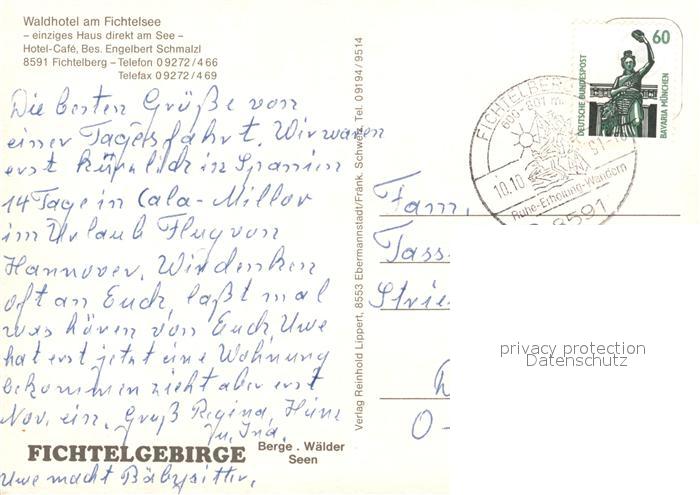 Waldhotel am Fichtelsee
– einziges Haus direkt am See –
Hotel-Café, Bes. Engelbert Schmalzl
8591 Fichtelberg – Telefon 0 9272 / 4 66
Telefax 0 9272 / 4 69
Die besten Grüße von
einer Tagesfahrt. Wir waren
erst kürzlich in Spanien
14 Tage in Cala-Millor
im Urlaub Flug von
Hannover. Wir denken
oft an Euch, laßt mal
was hören von Euch. Uwe
hat erst jetzt eine Wohnung
bekommen zieht aber erst
Nov. ein. Gruß Regina, Heinz
u. Ina.
Uwe macht Babysitter.
FICHTELGEBIRGE
Berge . Wälder
Seen
Verlag Reinhold Lippert, 8553 Ebermannstadt/Fränk. Schweiz, Tel. 09194/9514
FICHTELBERG
600 - 801 m
10.10
91-18
Ruhe-Erholung-Wandern
8591
60
DEUTSCHE BUNDESPOST
BAVARIA MÜNCHEN
Fam.
Tass
Strie
O-
privacy protection
Datenschutz